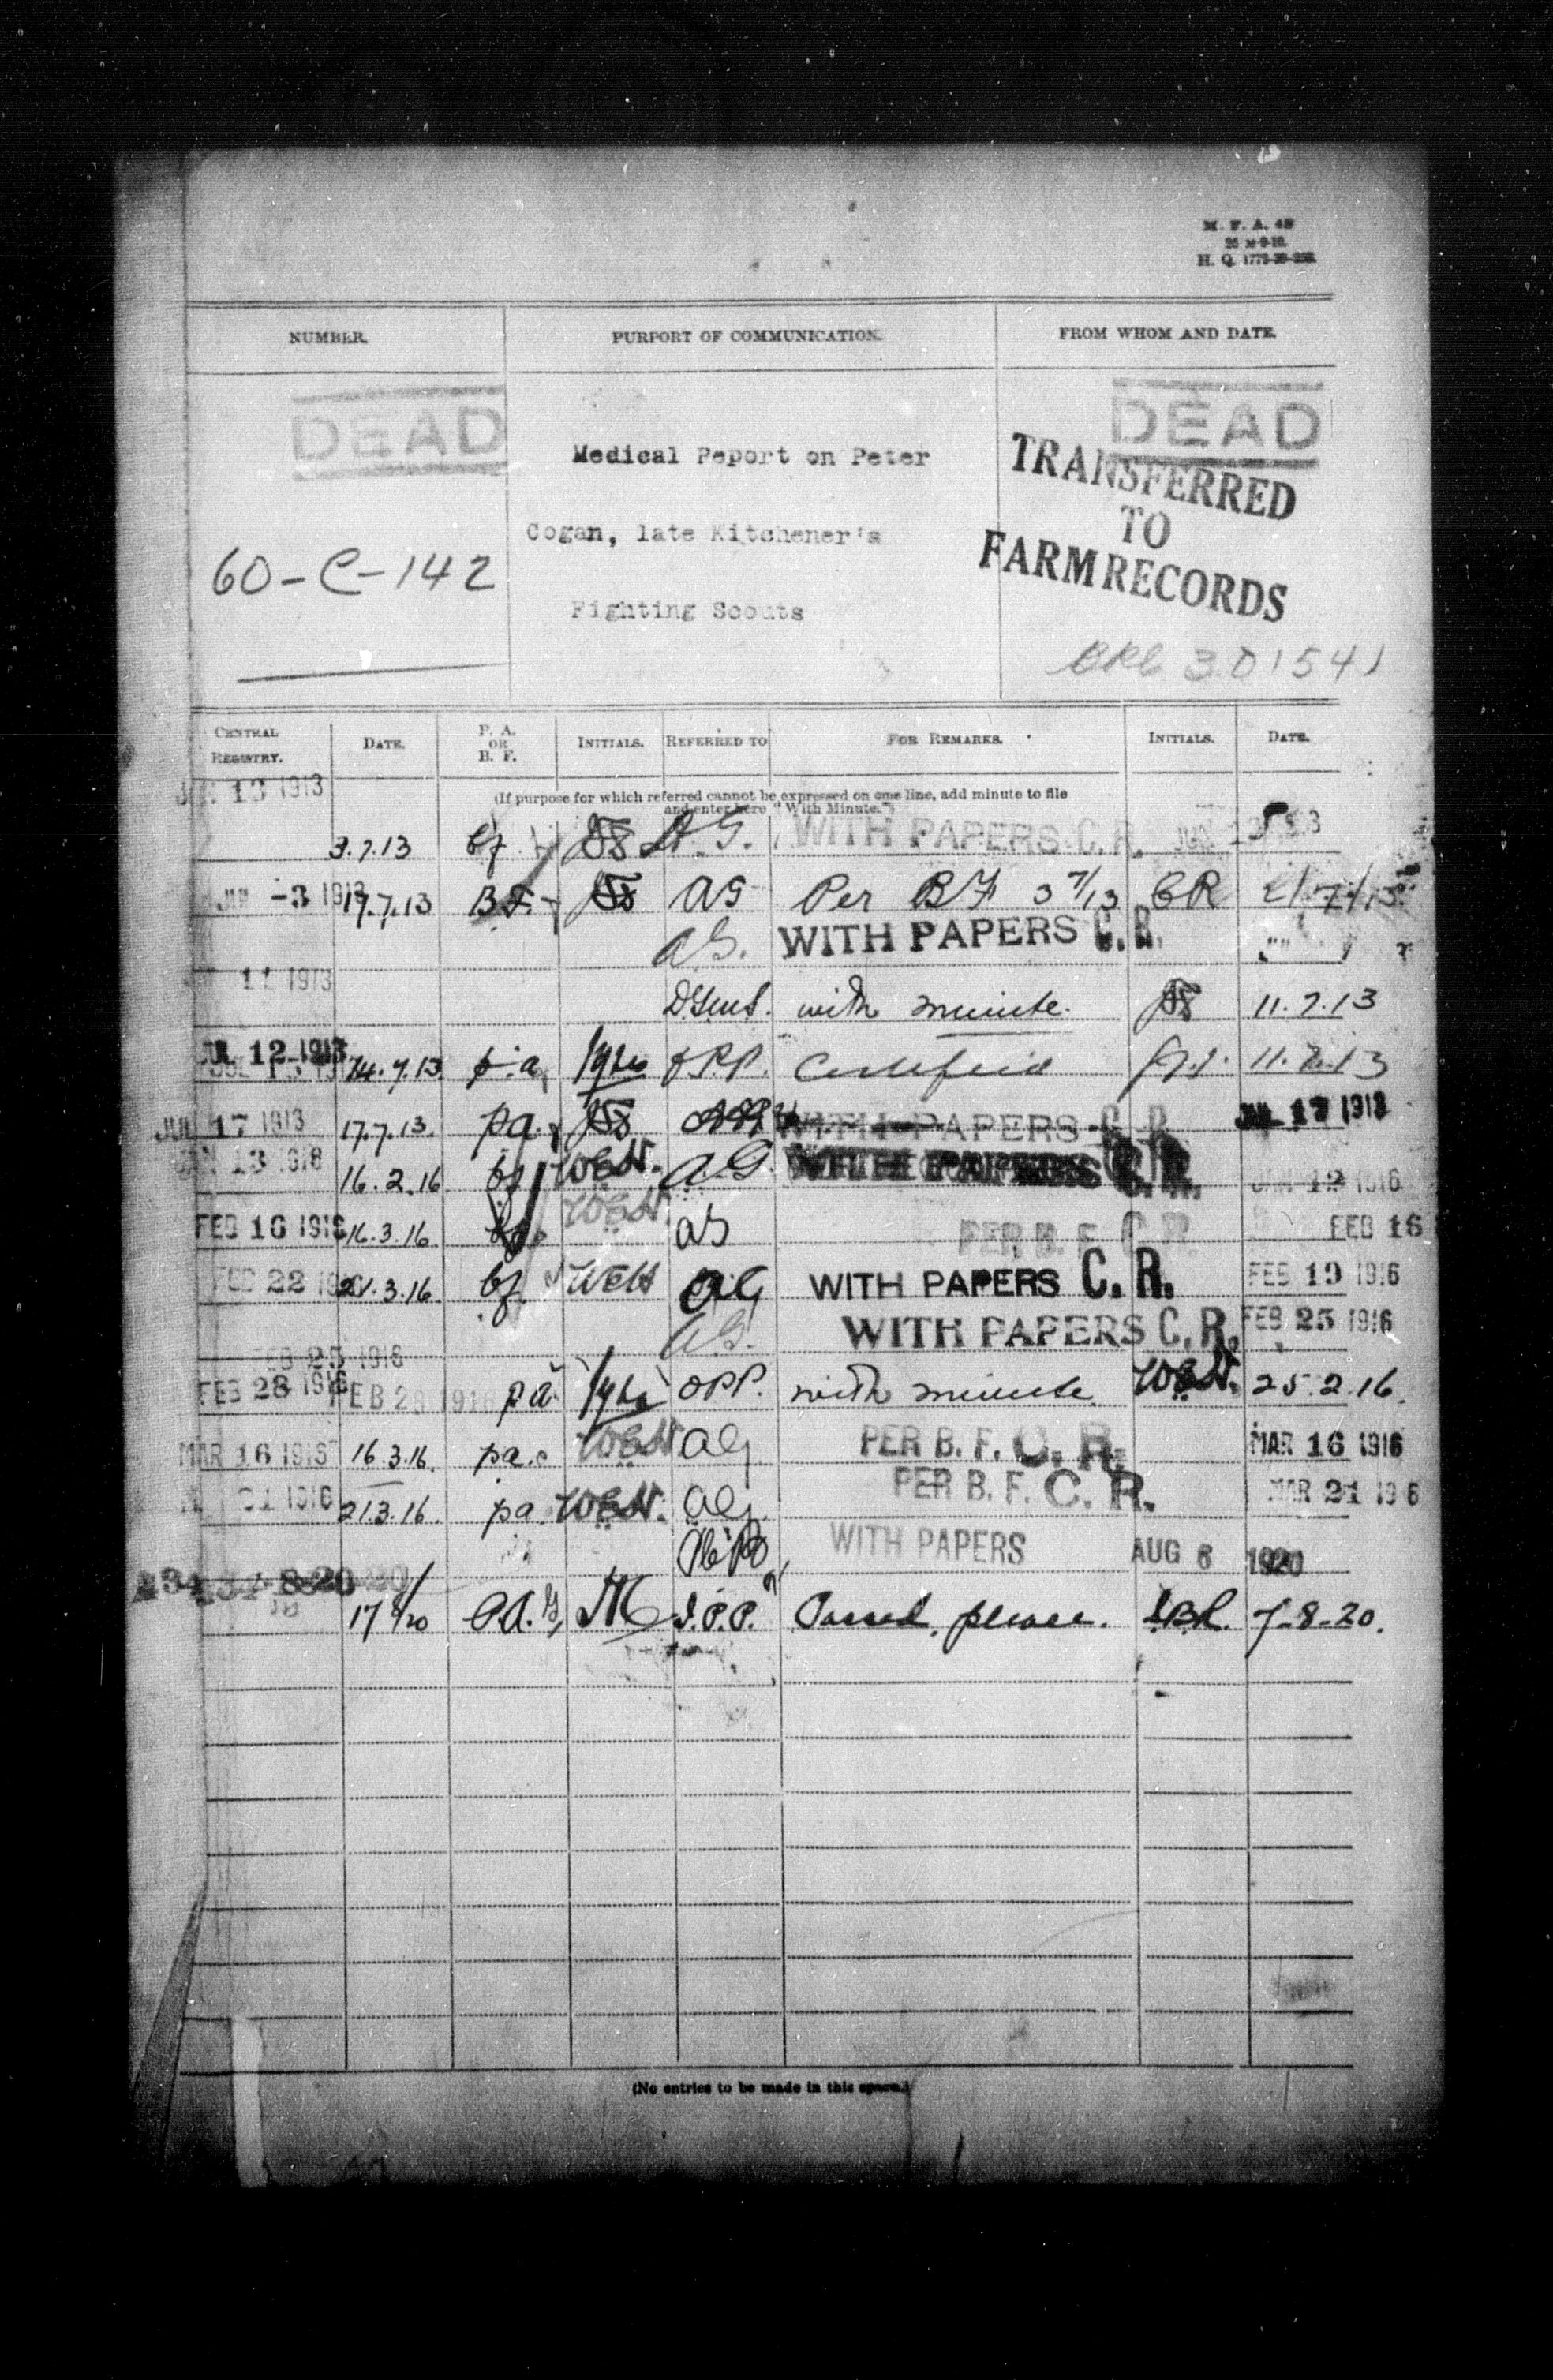 M. F. A. 43
H. Q. 1772-39-
NUMBER.
PURPORT OF COMMUNICATION.
FROM WHOM AND DATE.
DEAD
DEAD
Medical Report on Peter
Cogan, late Kitchener's
Fighting Scouts
60-C-142
TRANSFERRED
TO
FARM RECORDS
301541
CENTRAL REGISTRY.
DATE.
P. A. OR B. F.
INITIALS.
REFERRED TO
FOR REMARKS.
INITIALS.
DATE.
(If purpose for which referred cannot be expressed on one line, add minute to file
and enter here "With Minute.")
13 1913
3.7.13 bf A.G. WITH PAPERS C. R.
JUL -3 1913 17.7.13 B.F. AG Per BF 3 7/13 CR 2/7/13
A.G. WITH PAPERS C. R.
11 1913
DGMS. with minute. 11.7.13
JUL 12 1913 14.7.13 p.a. OPP. Certified 11.7.13
JUL 17 1913 17.7.13. pa. WITH PAPERS C. R. JUL 17 1913
JAN 13 1916 16.2.16 bf W.E.H. A.G. WITH PAPERS C. R. JAN 12 1916
FEB 16 1916 16.3.16 bf AG PER B. F. C. R. FEB 16
FEB 22 1916 21.3.16 bf AG WITH PAPERS C. R. FEB 19 1916
A.G. WITH PAPERS C. R. FEB 25 1916
FEB 25 1916
FEB 28 1916 FEB 28 1916 pa OPP. with minute W.E.H. 25.2.16.
MAR 16 1916 16.3.16. pa. AG PER B. F. C. R. MAR 16 1916
21 1916 21.3.16. pa. W.E.H. AG. PER B. F. C. R. MAR 21 1916
WITH PAPERS AUG 6 1920
17/8/20 P.A. I.P.P. Passed, please. 7-8-20.
(No entries to be made in this space.)